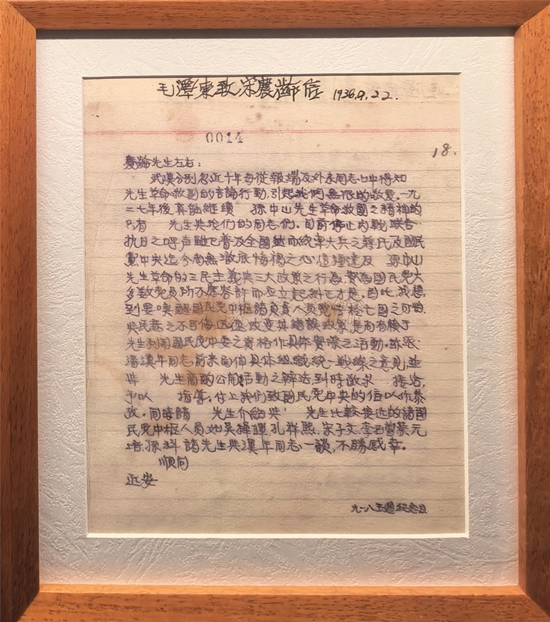 毛澤東致宋慶齡信 1936.9.22.
0014
18.
慶齡先生左右：
武漢分別忽近十年每從報端及外來同志口中得知
先生革命救國的言論行動，引起我們無限的敬意。一九
二七年後真能繼續 孫中山先生革命救國之精神的
只有 先生與我們的同志們。目前停止內戰聯合
抗日之呼聲雖已普及全國然而統率大兵之蔣氏及國民
黨中央迄今尚無徹底悔禍之心這種違反 孫中山
先生革命的三民主義與三大政策之行為實為國民黨大
多數黨員所不應容許而應立起糾正才是。因此我想
到要喚醒國民黨中樞諸負責人員覺悟於亡國之可怕
與民意之不可侮，迅速改變其錯誤政策是尚有賴于
先生利用國民黨中委之資格作具體實際之活動。茲派
潘漢年同志前來面申具体組織統一戰線之意見並
與 先生商酌公開活動之辦法到時敬求 接洽，
予以 指導，付上我們致國民黨中央的信以作參
攷。同時請 先生介紹與 先生比較接近的諸國
民黨中樞人員如吳稚暉孔祥熙、宋子文、李石曾蔡元
培、孫科諸先生與漢年同志一談，不勝感幸。
順问
近安
九一八五週紀念日